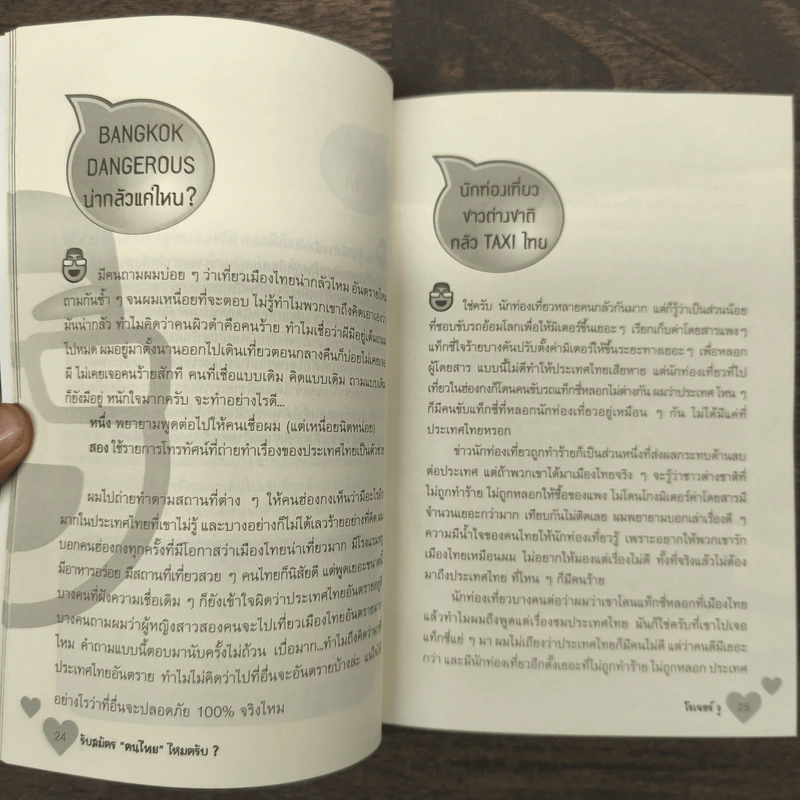 BANGKOK
DANGEROUS
น่ากลัวแค่ไหน?
มีคนถามผมบ่อย ๆ ว่าเที่ยวเมืองไทยน่ากลัวไหม อันตรายไหม
ถามกันซ้ำ ๆ จนผมเหนื่อยที่จะตอบ ไม่รู้ทำไมพวกเขาถึงคิดเอาเองว่า
มันน่ากลัว ทำไมคิดว่าคนผิวดำคือคนร้าย ทำไมเชื่อว่าผีมีอยู่เต็มถนน
ไปหมด ผมอยู่มาตั้งนานออกไปเดินเที่ยวตอนกลางคืนก็บ่อยไม่เคยเจอ
ผี ไม่เคยเจอคนร้ายสักที คนที่เชื่อแบบเดิม คิดแบบเดิม ถามแบบเดิม
ก็ยังมีอยู่ หนักใจมากครับ จะทำอย่างไรดี...
หนึ่ง พยายามพูดต่อไปให้คนเชื่อผม (แต่เหนื่อยนิดหน่อย)
สอง ใช้รายการโทรทัศน์ที่ถ่ายทำเรื่องของประเทศไทยเป็นตัวช่วย
ผมไปถ่ายทำตามสถานที่ต่าง ๆ ให้คนฮ่องกงเห็นว่ามีอะไรอีก
มากในประเทศไทยที่เขาไม่รู้ และบางอย่างก็ไม่ได้เลวร้ายอย่างที่คิด ผม
บอกคนฮ่องกงทุกครั้งที่มีโอกาสว่าเมืองไทยน่าเที่ยวมาก มีโรงแรมหรู
มีอาหารอร่อย มีสถานที่เที่ยวสวย ๆ คนไทยก็นิสัยดี แต่พูดเยอะขนาดนี้
บางคนที่ฝังความเชื่อเดิม ๆ ก็ยังเข้าใจผิดว่าประเทศไทยอันตรายอยู่ดี
บางคนถามผมว่าผู้หญิงสาวสองคนจะไปเที่ยวเมืองไทยอันตรายมาก
ไหม คำถามแบบนี้ตอบมานับครั้งไม่ถ้วน เบื่อมาก...ทำไมถึงคิดว่ามาที่
ประเทศไทยอันตราย ทำไมไม่คิดว่าไปที่อื่นจะอันตรายบ้างล่ะ แน่ใจได้
อย่างไรว่าที่อื่นจะปลอดภัย 100% จริงไหม
24 รับสมัคร "คนไทย" ไหมครับ ?
นักท่องเที่ยว
ชาวต่างชาติ
กลัว TAXI ไทย
ใช่ครับ นักท่องเที่ยวหลายคนกลัวกันมาก แต่ก็รู้ว่าเป็นส่วนน้อย
ที่ชอบขับรถอ้อมโลกเพื่อให้มิเตอร์ขึ้นเยอะๆ เรียกเก็บค่าโดยสารแพงๆ
แท็กซี่ใจร้ายบางคันปรับตั้งค่ามิเตอร์ให้ขึ้นระยะทางเยอะๆ เพื่อหลอก
ผู้โดยสาร แบบนี้ไม่ดีทำให้ประเทศไทยเสียหาย แต่นักท่องเที่ยวที่ไป
เที่ยวในฮ่องกงก็โดนคนขับรถแท็กซี่หลอกไม่ต่างกัน ผมว่าประเทศ ไหน ๆ
ก็มีคนขับแท็กซี่ที่หลอกนักท่องเที่ยวอยู่เหมือน ๆ กัน ไม่ได้มีแค่ที่
ประเทศไทยหรอก
ข่าวนักท่องเที่ยวถูกทำร้ายก็เป็นส่วนหนึ่งที่ส่งผลกระทบด้านลบ
ต่อประเทศ แต่ถ้าพวกเขาได้มาเมืองไทยจริง ๆ จะรู้ว่าชาวต่างชาติที่
ไม่ถูกทำร้าย ไม่ถูกหลอกให้ซื้อของแพง ไม่โดนโกงมิเตอร์ค่าโดยสารมี
จำนวนเยอะกว่ามาก เทียบกันไม่ติดเลย ผมพยายามบอกเล่าเรื่องดี ๆ
ความมีน้ำใจของคนไทยให้นักท่องเที่ยวรู้ เพราะอยากให้พวกเขารัก
เมืองไทยเหมือนผม ไม่อยากให้มองแต่เรื่องไม่ดี ทั้งที่จริงแล้วไม่ต้อง
มาถึงประเทศไทย ที่ไหน ๆ ก็มีคนร้าย
นักท่องเที่ยวบางคนต่อว่าผมว่าเขาโดนแท็กซี่หลอกที่เมืองไทย
แล้วทำไมผมถึงพูดแต่เรื่องชมประเทศไทย มันก็ใช่ครับที่เขาไปเจอ
แท็กซี่แย่ ๆ มา ผมไม่เถียงว่าประเทศไทยก็มีคนไม่ดี แต่ว่าคนดีมีเยอะ
กว่า และมีนักท่องเที่ยวอีกตั้งเยอะที่ไม่ถูกทำร้าย ไม่ถูกหลอก ประเทศ
โรเจอร์ วู 25